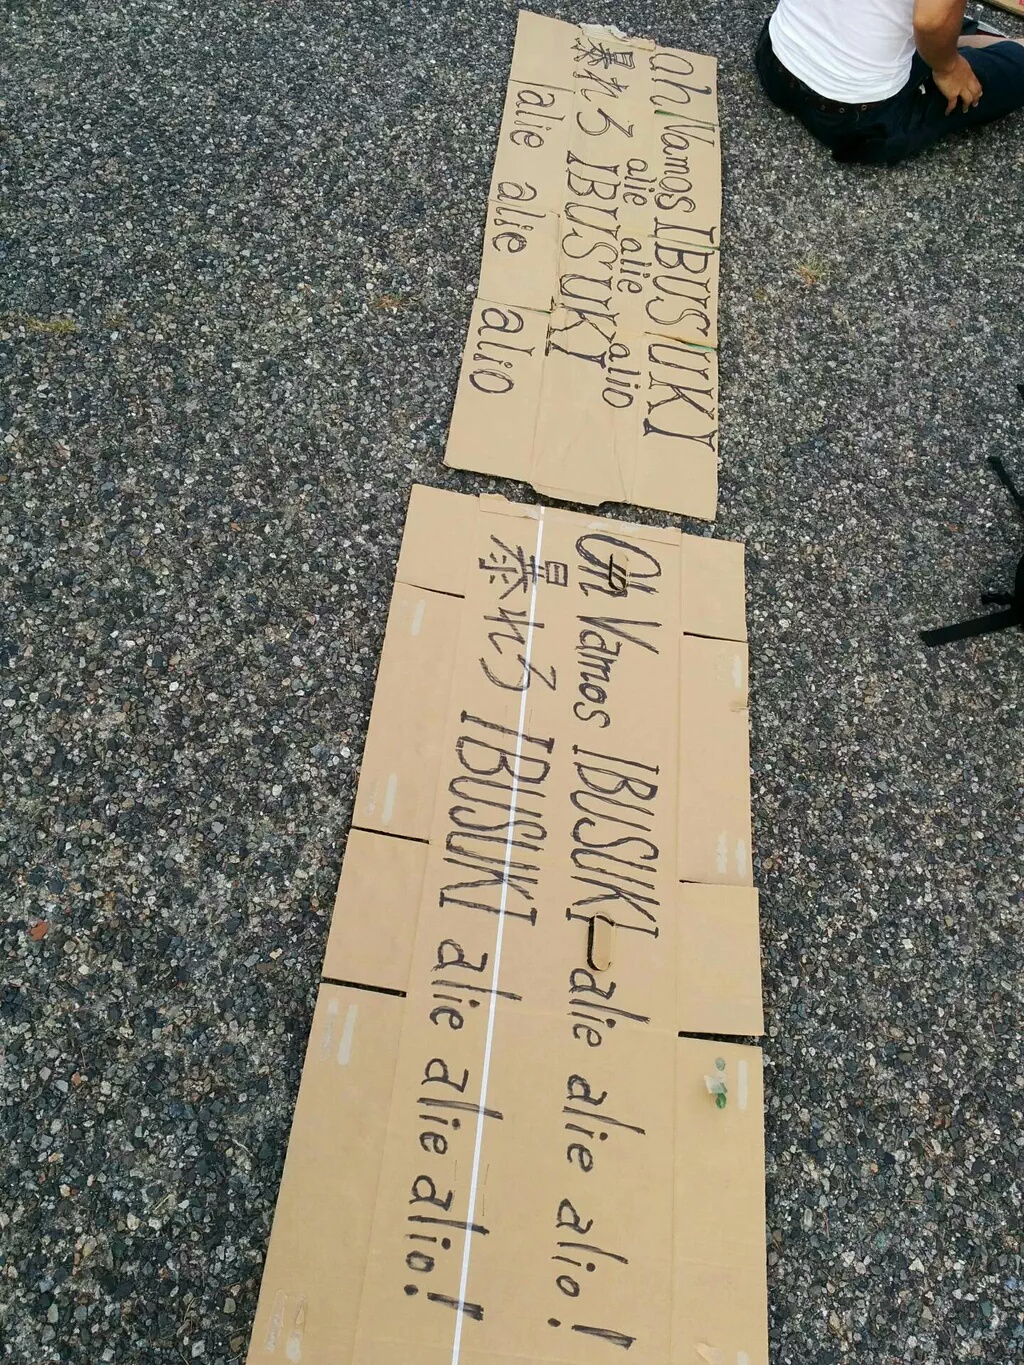 oh Vamos IBUSUKI
alie alie alio
暴れろ IBUSUKI
alie alie alio
Oh Vamos IBUSUKI alie alie alio!
暴れろ IBUSUKI alie alie alio!